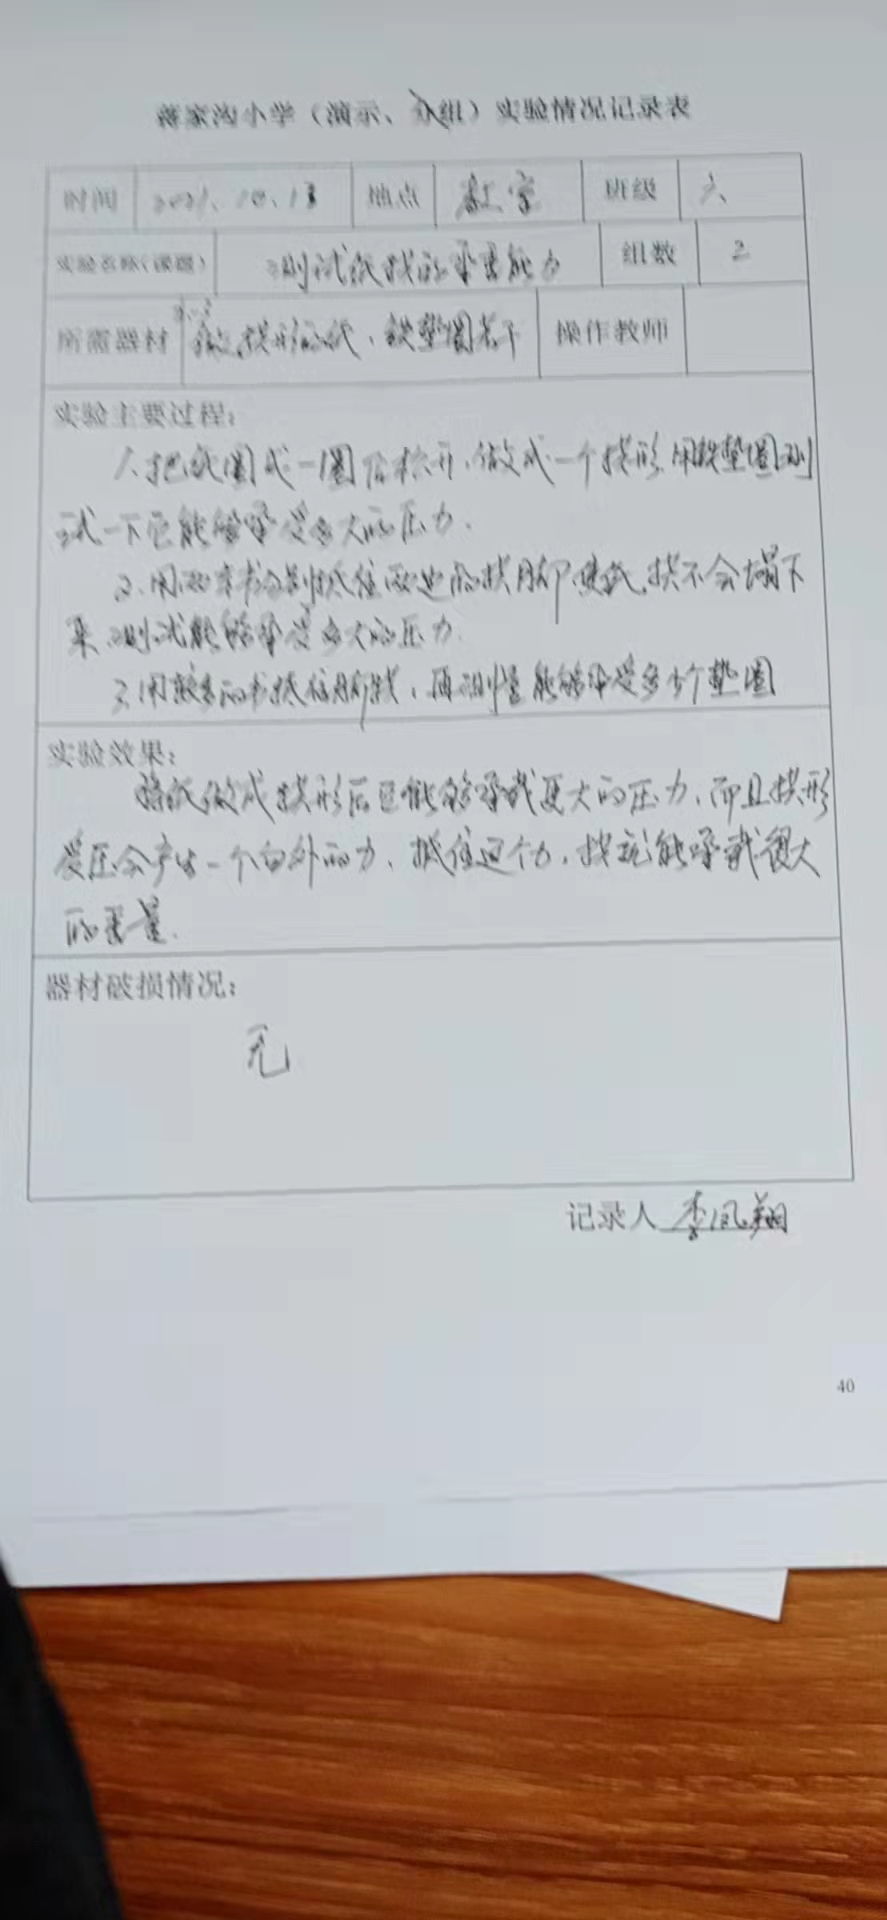 蒋家沟小学（演示、分组）实验情况记录表
时间 2021.10.13 地点 教室 班级 六
实验名称（课题） 测试纸拱的承重能力 组数 2
所需器材 做拱形的纸、铁垫圈若干 操作教师
实验主要过程：
1.把纸圈成一圈后松开，做成一个拱形用铁垫圈测
试一下它能够承受多大的压力.
2.用两本书分别抵住两边的拱脚使纸拱不会塌下
来，测试能够承受多大的压力.
3.用较多的书抵住脚拱，再测量能够承受多少个垫圈
实验效果：
将纸做成拱形后它能够承载更大的压力，而且拱形
受压会产生一个向外的力，抵住这个力，拱就能承载很大
的重量.
器材破损情况：
无
记录人 李凤翔
40